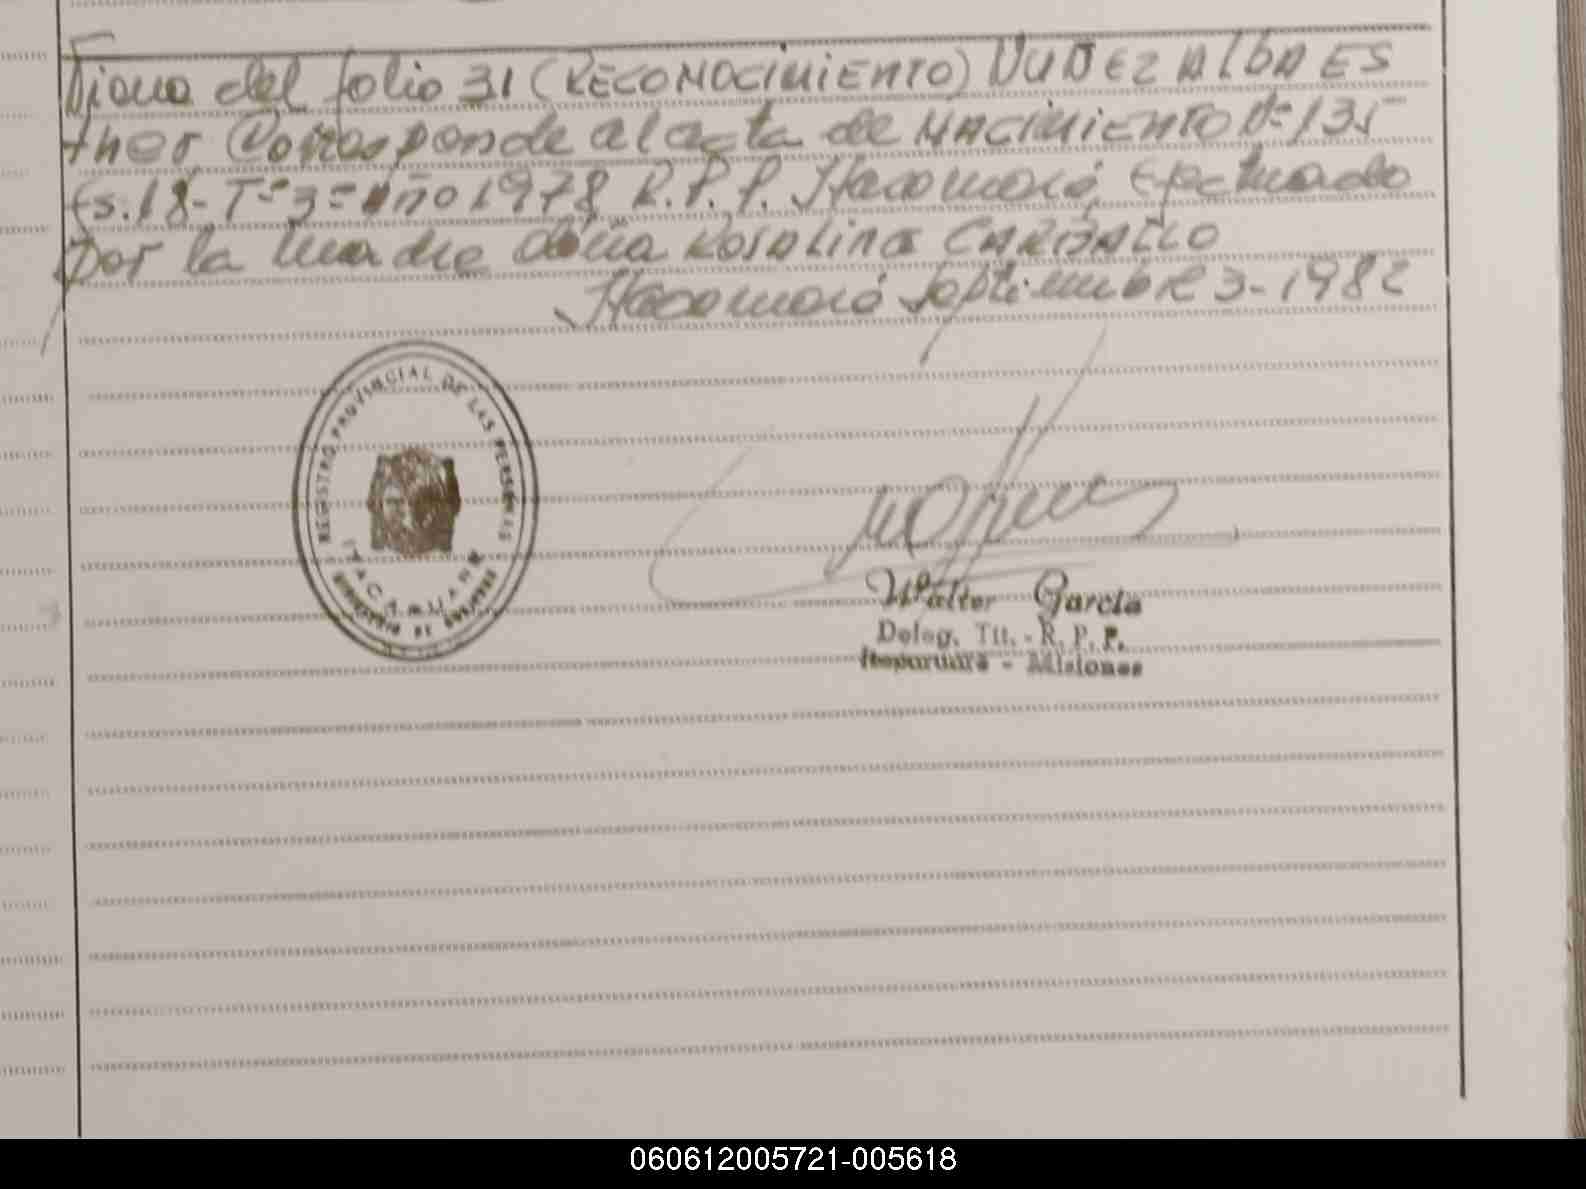 Viene del folio 31 (RECONOCIMIENTO) NUÑEZ ALBA ES
ther Corresponde al acta de NACIMIENTO Nº 135
Fs. 18 - Tº 3 = Año 1978 R.P.P. Itacaruaré, Efectuado
por la madre doña ROSALINA CARBALLO
Itacaruaré Septiembre 3 - 1982
REGISTRO PROVINCIAL DE LAS PERSONAS
ITACARUARE
Walter Garcia
Deleg. Tit. - R. P. P.
Itacaruaré - Misiones
060612005721-005618